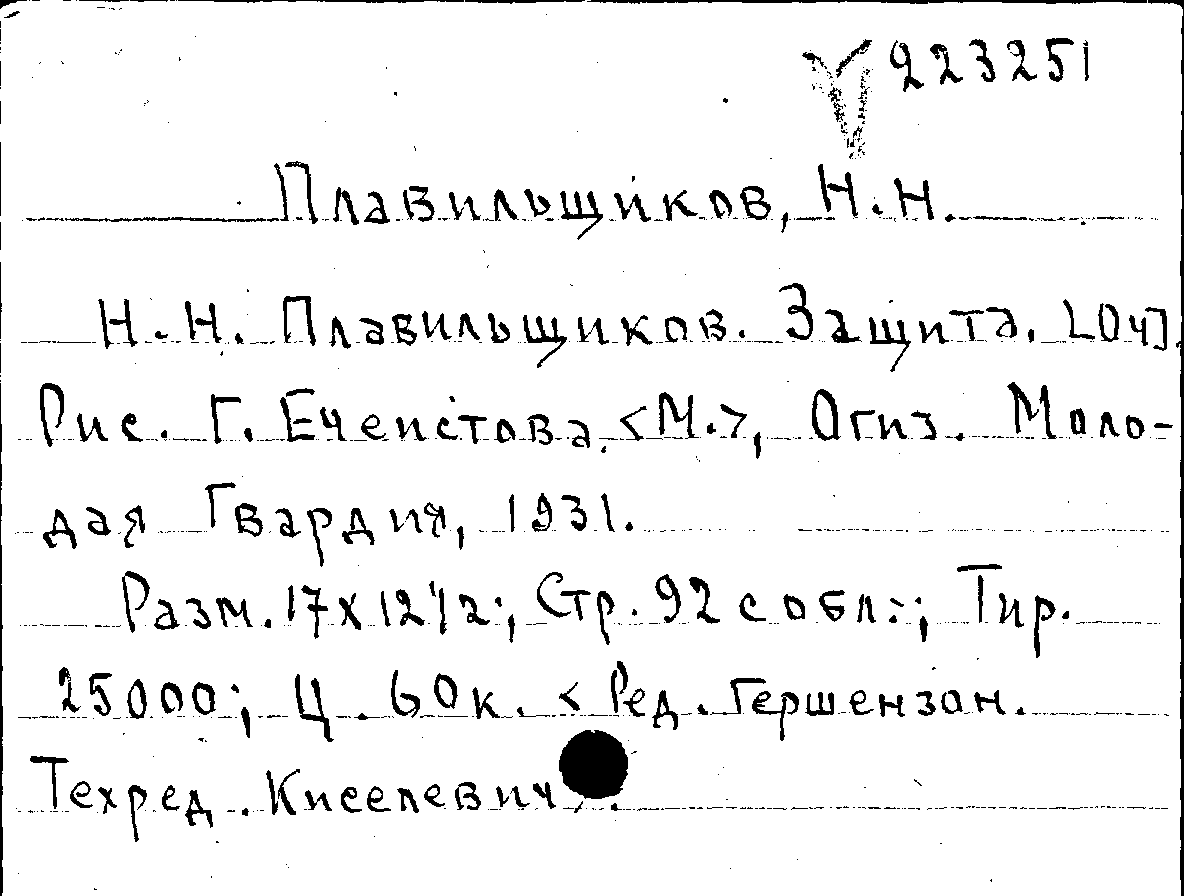 223251
Плавильщиков, Н.Н.
Н.Н. Плавильщиков. Защита. [Оч].
Рис. Г. Ечеистова. <М.>, Огиз. Моло-
дая Гвардия, 1931.
Разм. 17х12 1/2; Стр. 92 с обл.; Тир.
25000; Ц. 60к. <Ред. Гершензон.
Техред. Киселевич>.